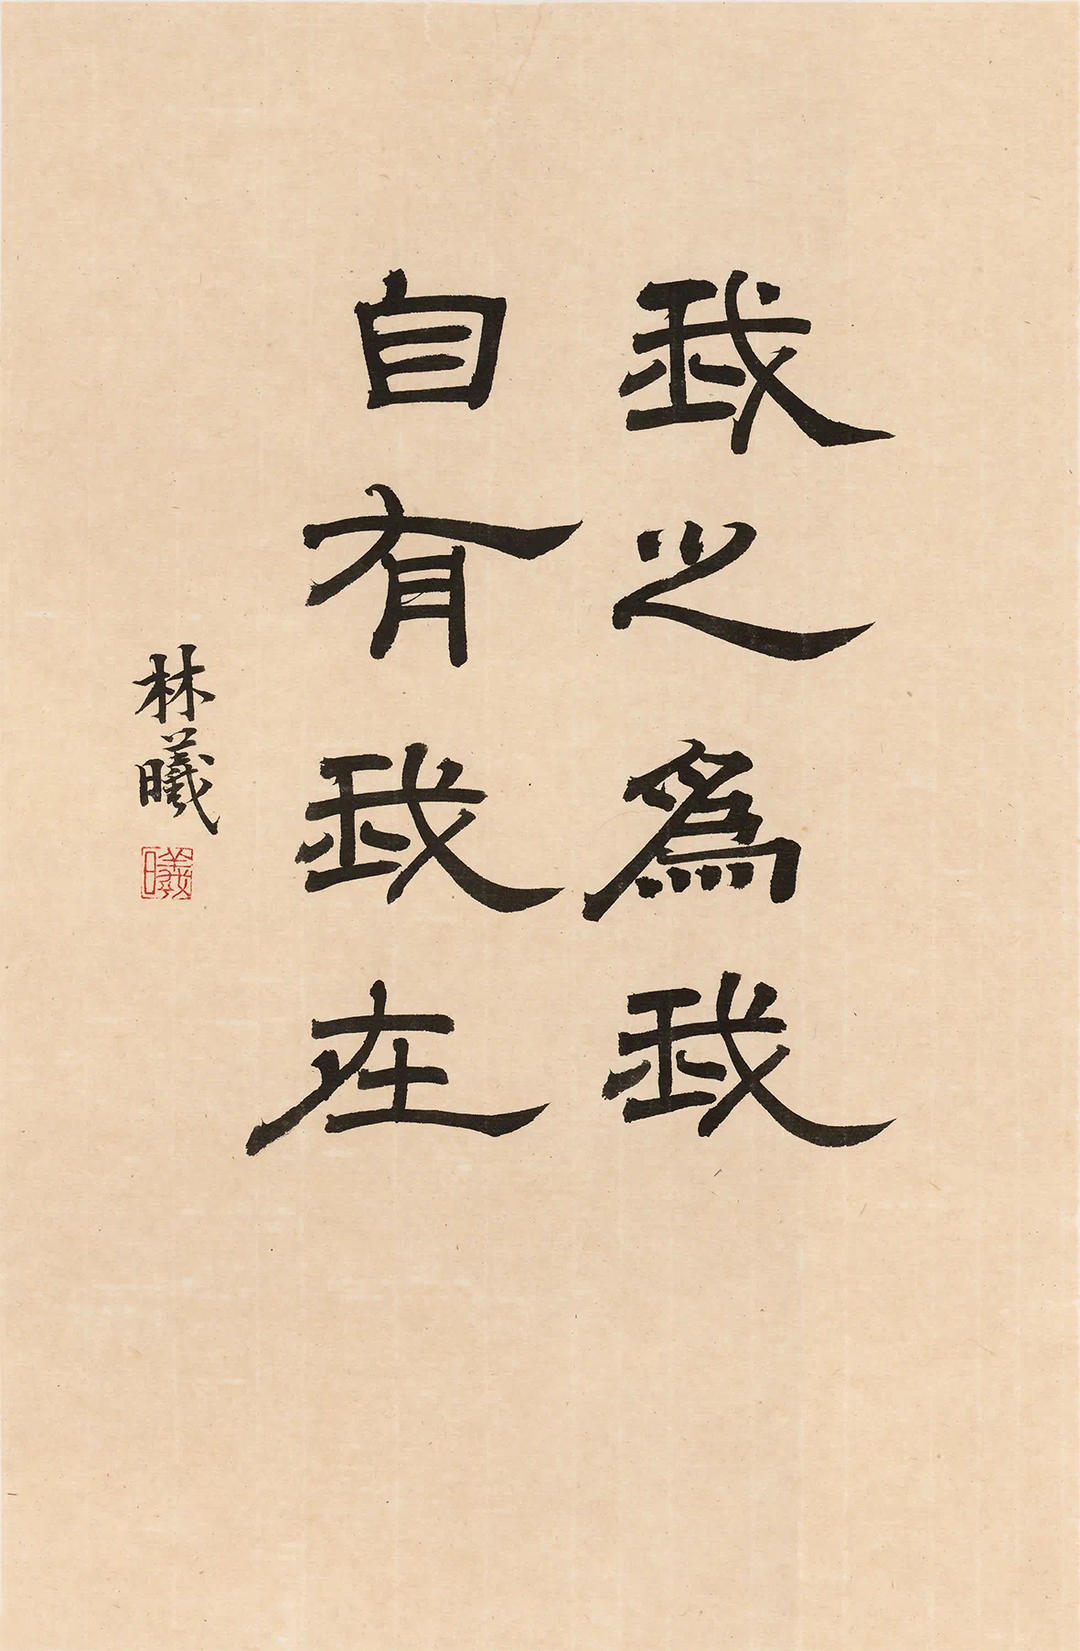 我之為我
自有我在
林曦
曦